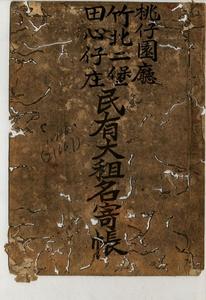 桃仔園廳
竹北二堡
田心仔庄
民有大租名寄帳